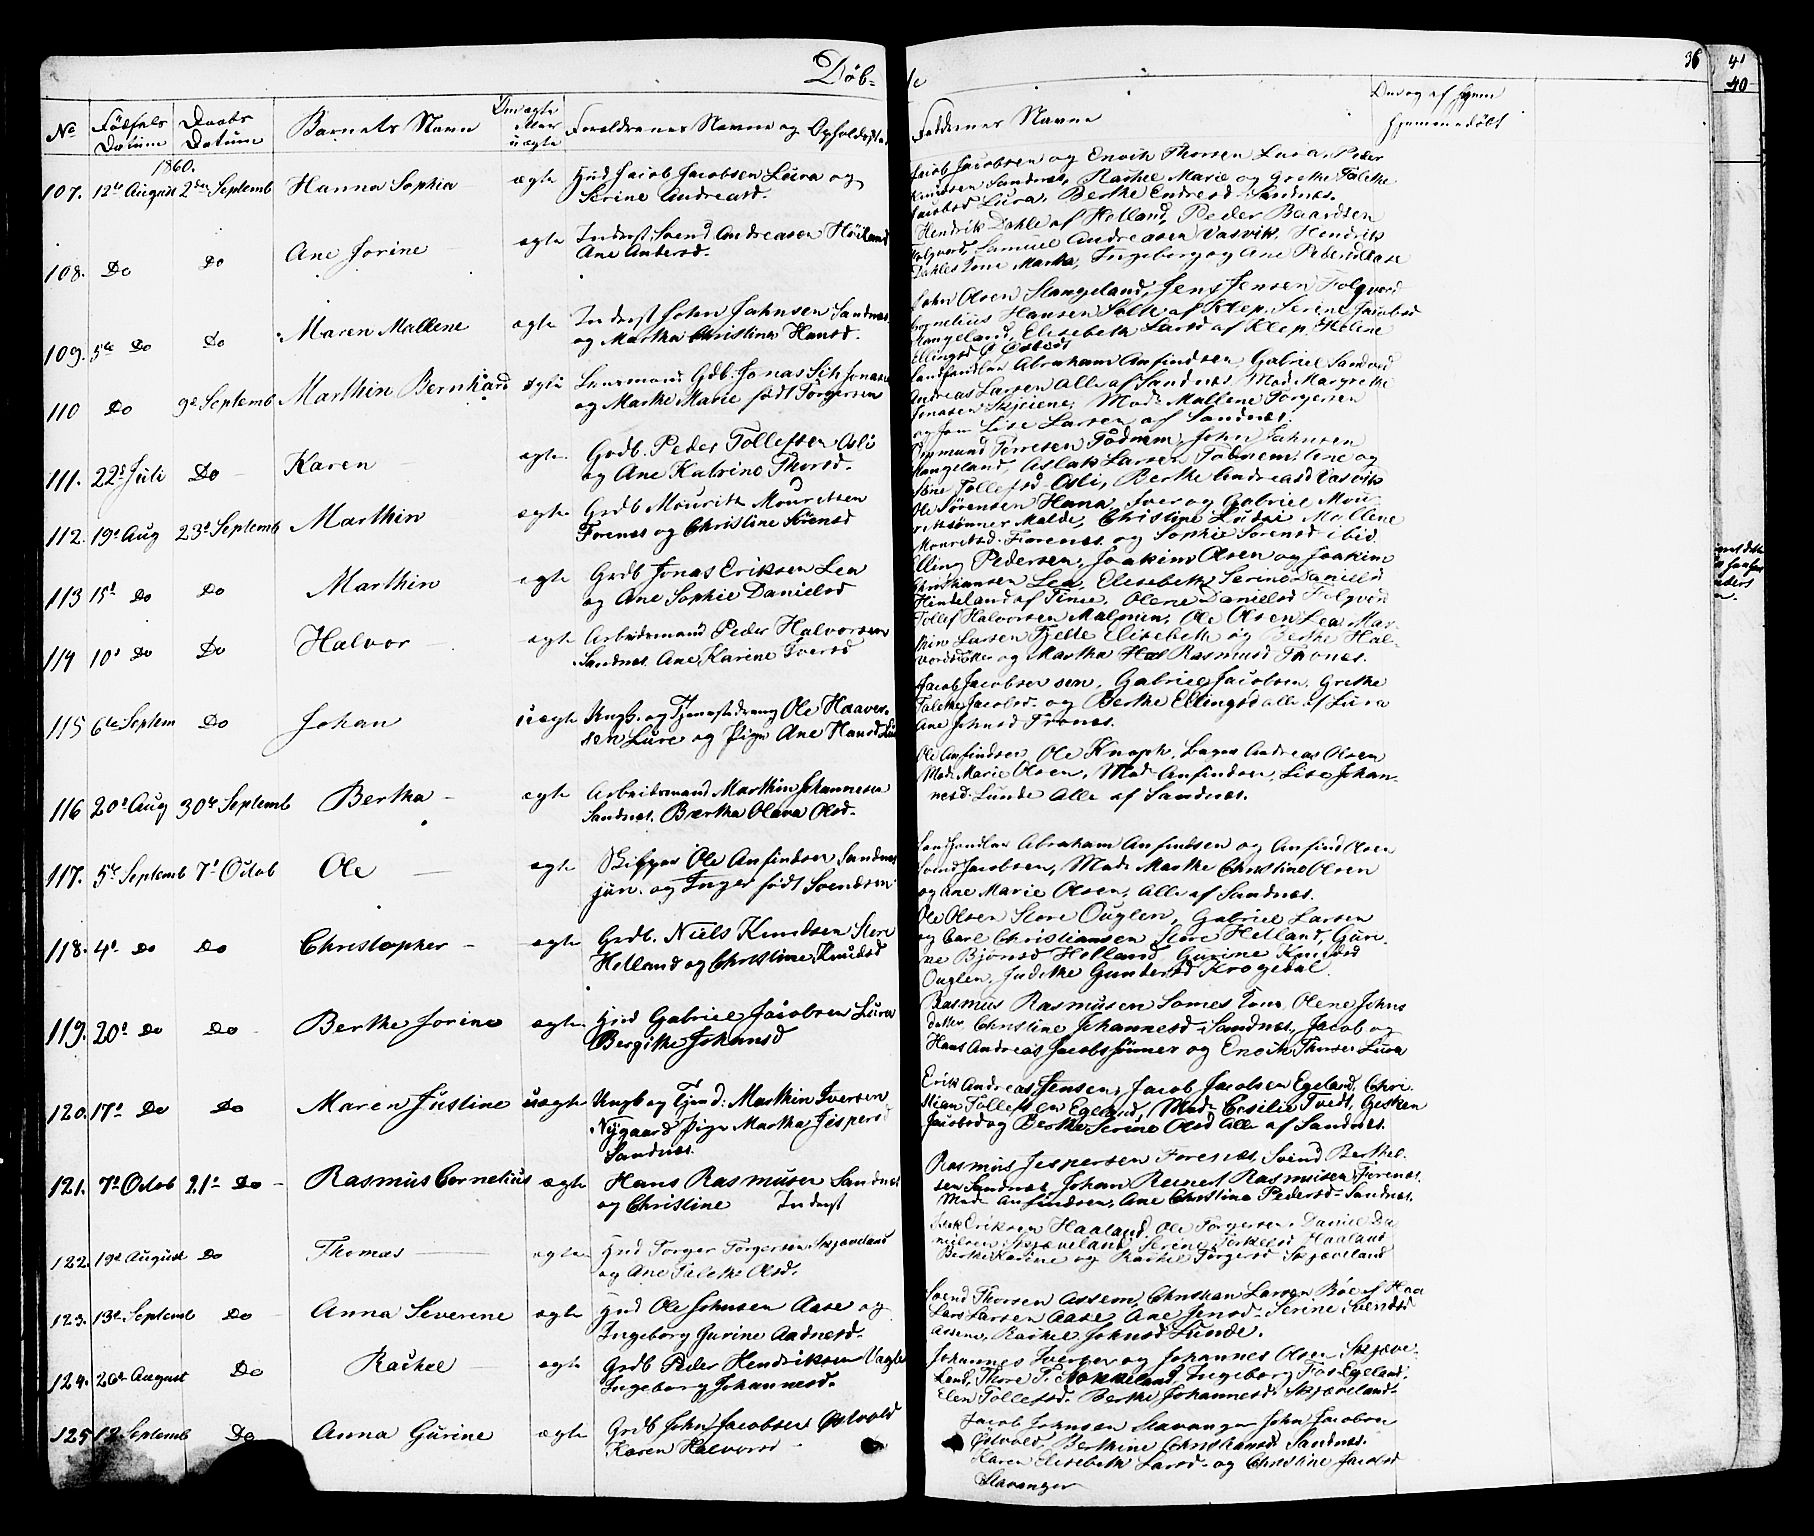 Døb-
te
36
41
40
No
Fødsels Datum
Daabs Datum
Barnets Navn
Om ægte eller uægte
Forældrenes Navne og Opholdssted
Faddernes Navne
Om og af hvem hjemmedøbt
1860.
107. 12te August 2den Septemb Hanna Sophia ægte Hmd Jacob Jacobsen Lura og
Serine Andreasd.
Jacob Jacobsen og Enoch Thorsen Lura, Peder
Knudsen Sandnæs, Rachel Marie og Grethe Talethe
Jacobsd Lura, Berthe Endresd Sandnæs.
108. Do Do Ane Jorine ægte Inderst Svend Andreasen Høiland
Ane Andersd.
Hendrik Dahle af Holland, Peder Baardsen
Folqvord, Samuel Andreasen Vasvik, Hendrik
Dahles Kone Martha, Ingeborg og Ane Pedersd Aase
109. 5te Do Do Maren Mallene ægte Inderst John Johnsen Sandnæs
og Martha Christine Hansd.
John Olsen Stangeland, Jens Jensen Folqvord
Cornelius Hansen Salte af Klep, Serene Jacobsd
Stangeland, Elisebeth Larsd af Klep, Helene
Ellingsd
110 Do 9de Septemb Marthin Bernhard ægte Lensmand Gdb. Jonas Jonasen
og Marthe Marie født Torgersen
Landhandler Abraham Anfindsen, Gabriel Sandved
Andreas Larsen alle af Sandnæs, Mad. Margrethe
Jonasen Skjeiene, Mad. Mallene Torgersen
og Jom Lise Larsen af Sandnæs.
111. 22d Juli Do Karen ægte Grdb. Peder Tollefsen Osli
og Ane Katrine Thorsd.
Ommund Torresen Fodnem, John Johnsen
Stangeland, Aslak Larsen Fodnem, Ane og
Stine Tollefsd Osli, Berthe Andreasd Vasvik
112. 19d Aug 23d Septemb Marthin ægte Grdb Mourits Mouritsen
Forenæs og Christine Sørensd
Ole Sørensen Hana, Iver og Gabriel Mou-
ritssønner Malde, Christine Ludvi Mallene
Mouritsd. Forenæs og Sophie Sørensd ibid
113 15d Do Do Marthin ægte Grdb Jonas Eriksen Lea
og Ane Sophie Danielsd
Elling Pedersen, Joakim Olsen og Joakim
Christiansen Lea, Elisebeth Serine Danielsd
Hindeland af Time, Olene Danielsd Folqvord
114 10d Do Do Halvor ægte Arbeidsmand Peder Halvorsen
Sandnæs. Ane Karine Iversd
Tollef Halvorsen Malmen, Ole Olsen Lea Mar-
thin Larsen Tjelte Elisebeth og Berthe Hal-
vorsdøtter og Martha Rasmusd Thronæs.
115 6te Septem Do Johan uægte Ungk. og Tjenestedreng Ole Haaver-
sen Lure og Pige Ane Hansd Lura
Jacob Jacobsen sen, Gabriel Jacobsen, Grethe
Talethe Jacobsd. og Berthe Ellingsd alle af Lura
Ane Johnsd Tronæs.
116 20d Aug 30te Septemb Bertha ægte Arbeidsmand Marthin Johannesen
Sandnæs. Bertha Olava Olsd.
Ole Anfindsen, Ole Knoph, Bager Andreas Olsen
Mad. Marie Olsen, Mad. Anfindsen, Lise Johan-
nesd. Lunde Alle af Sandnæs.
117. 5te Septemb 7d Octob Ole ægte Skipper Ole Anfindsen Sandnæs
jun. og Inger født Svendsen
Landhandler Abraham Anfindsen og Anfind Olsen
Svend Jacobsen, Mad. Marthe Christine Olsen
og Ane Marie Olsen, Alle af Sandnæs.
118. 4d Do Do Christopher ægte Grdb. Niels Knudsen Store
Helland og Christine Knudsd
Ole Olsen Store Ouglen, Gabriel Larsen
og Carl Christiansen Store Helland, Guri-
ne Bjørnsd Helland, Gurine Knudsd
Ouglen, Judithe Gundersd Krogedal.
119. 20d Do Do Berthe Jorine ægte Hmd Gabriel Jacobsen Lura
Bergithe Johnsd
Rasmus Rasmusen Somes, Olene Johns
datter, Christine Johannesd Sandnæs, Jacob og
Hans Andreas Jacobssønner og Enoch Thorsen Lura
120. 17d Do Do Maren Justine uægte Ungk og Tjend: Marthin Iversen
Nygaard Pige Martha Jespersd
Sandnæs.
Erik Andreas Jensen, Jacob Jacobsen Egeland, Chri-
stian Tollefsen Egeland, Mad. Cecilie Tvedt, Gesken
Jacobsd og Berthe Serine Olsd Alle af Sandnæs.
121. 7d Octob 21d Do Rasmus Cornelius ægte Hans Rasmusen Sandnæs
og Christine Inderst
Rasmus Jespersen Forenæs, Svend Berthel-
sen Sandnæs, Johan Reinert Rasmusen Forenæs.
Mad. Anfindsen, Ane Christine Pedersd. Sandnæs.
122. 19d August Do Thomas ægte Hmd Torger Torgersen Skjæveland
og Ane Talethe Olsd.
Eriksen Haaland, Ole Torgersen, Daniel Da-
nielsen Skjæveland, Serine Torkelsd Haaland
Berthe Karine og Rachel Torgersd Skjæveland
123. 13d Septemb Do Anna Severene ægte Hmd Ole Johnsen Aase og
Ingeborg Gurine Aadnesd.
Svend Thorsen Assem, Christian Larsen Bøe af Haa
Lars Larsen Aase, Ane Jensd. Serine Svendsd
Assem, Rachel Johnsd Lunde.
124. 26d August Do Rachel ægte Grdb Peder Hendriksen Vagle
Ingeborg Johannesd.
Johannes Iversen og Johannes Olsen Skjæve-
land, Thore T. Aakkeland, Ingeborg Egeland,
Elen Tollefsd. Berthe Johannesd. Skjæveland.
125 12 Septemb Do Anna Gurine ægte Grdb John Jacobsen Østvold
Karen Halvorsd
Jacob Johnsen Stavanger John Jacobsen
Østvold, Berthine Christiansd. Sandnæs.
Karen Elisebeth Larsd. og Christine Jacobsd
Stavanger